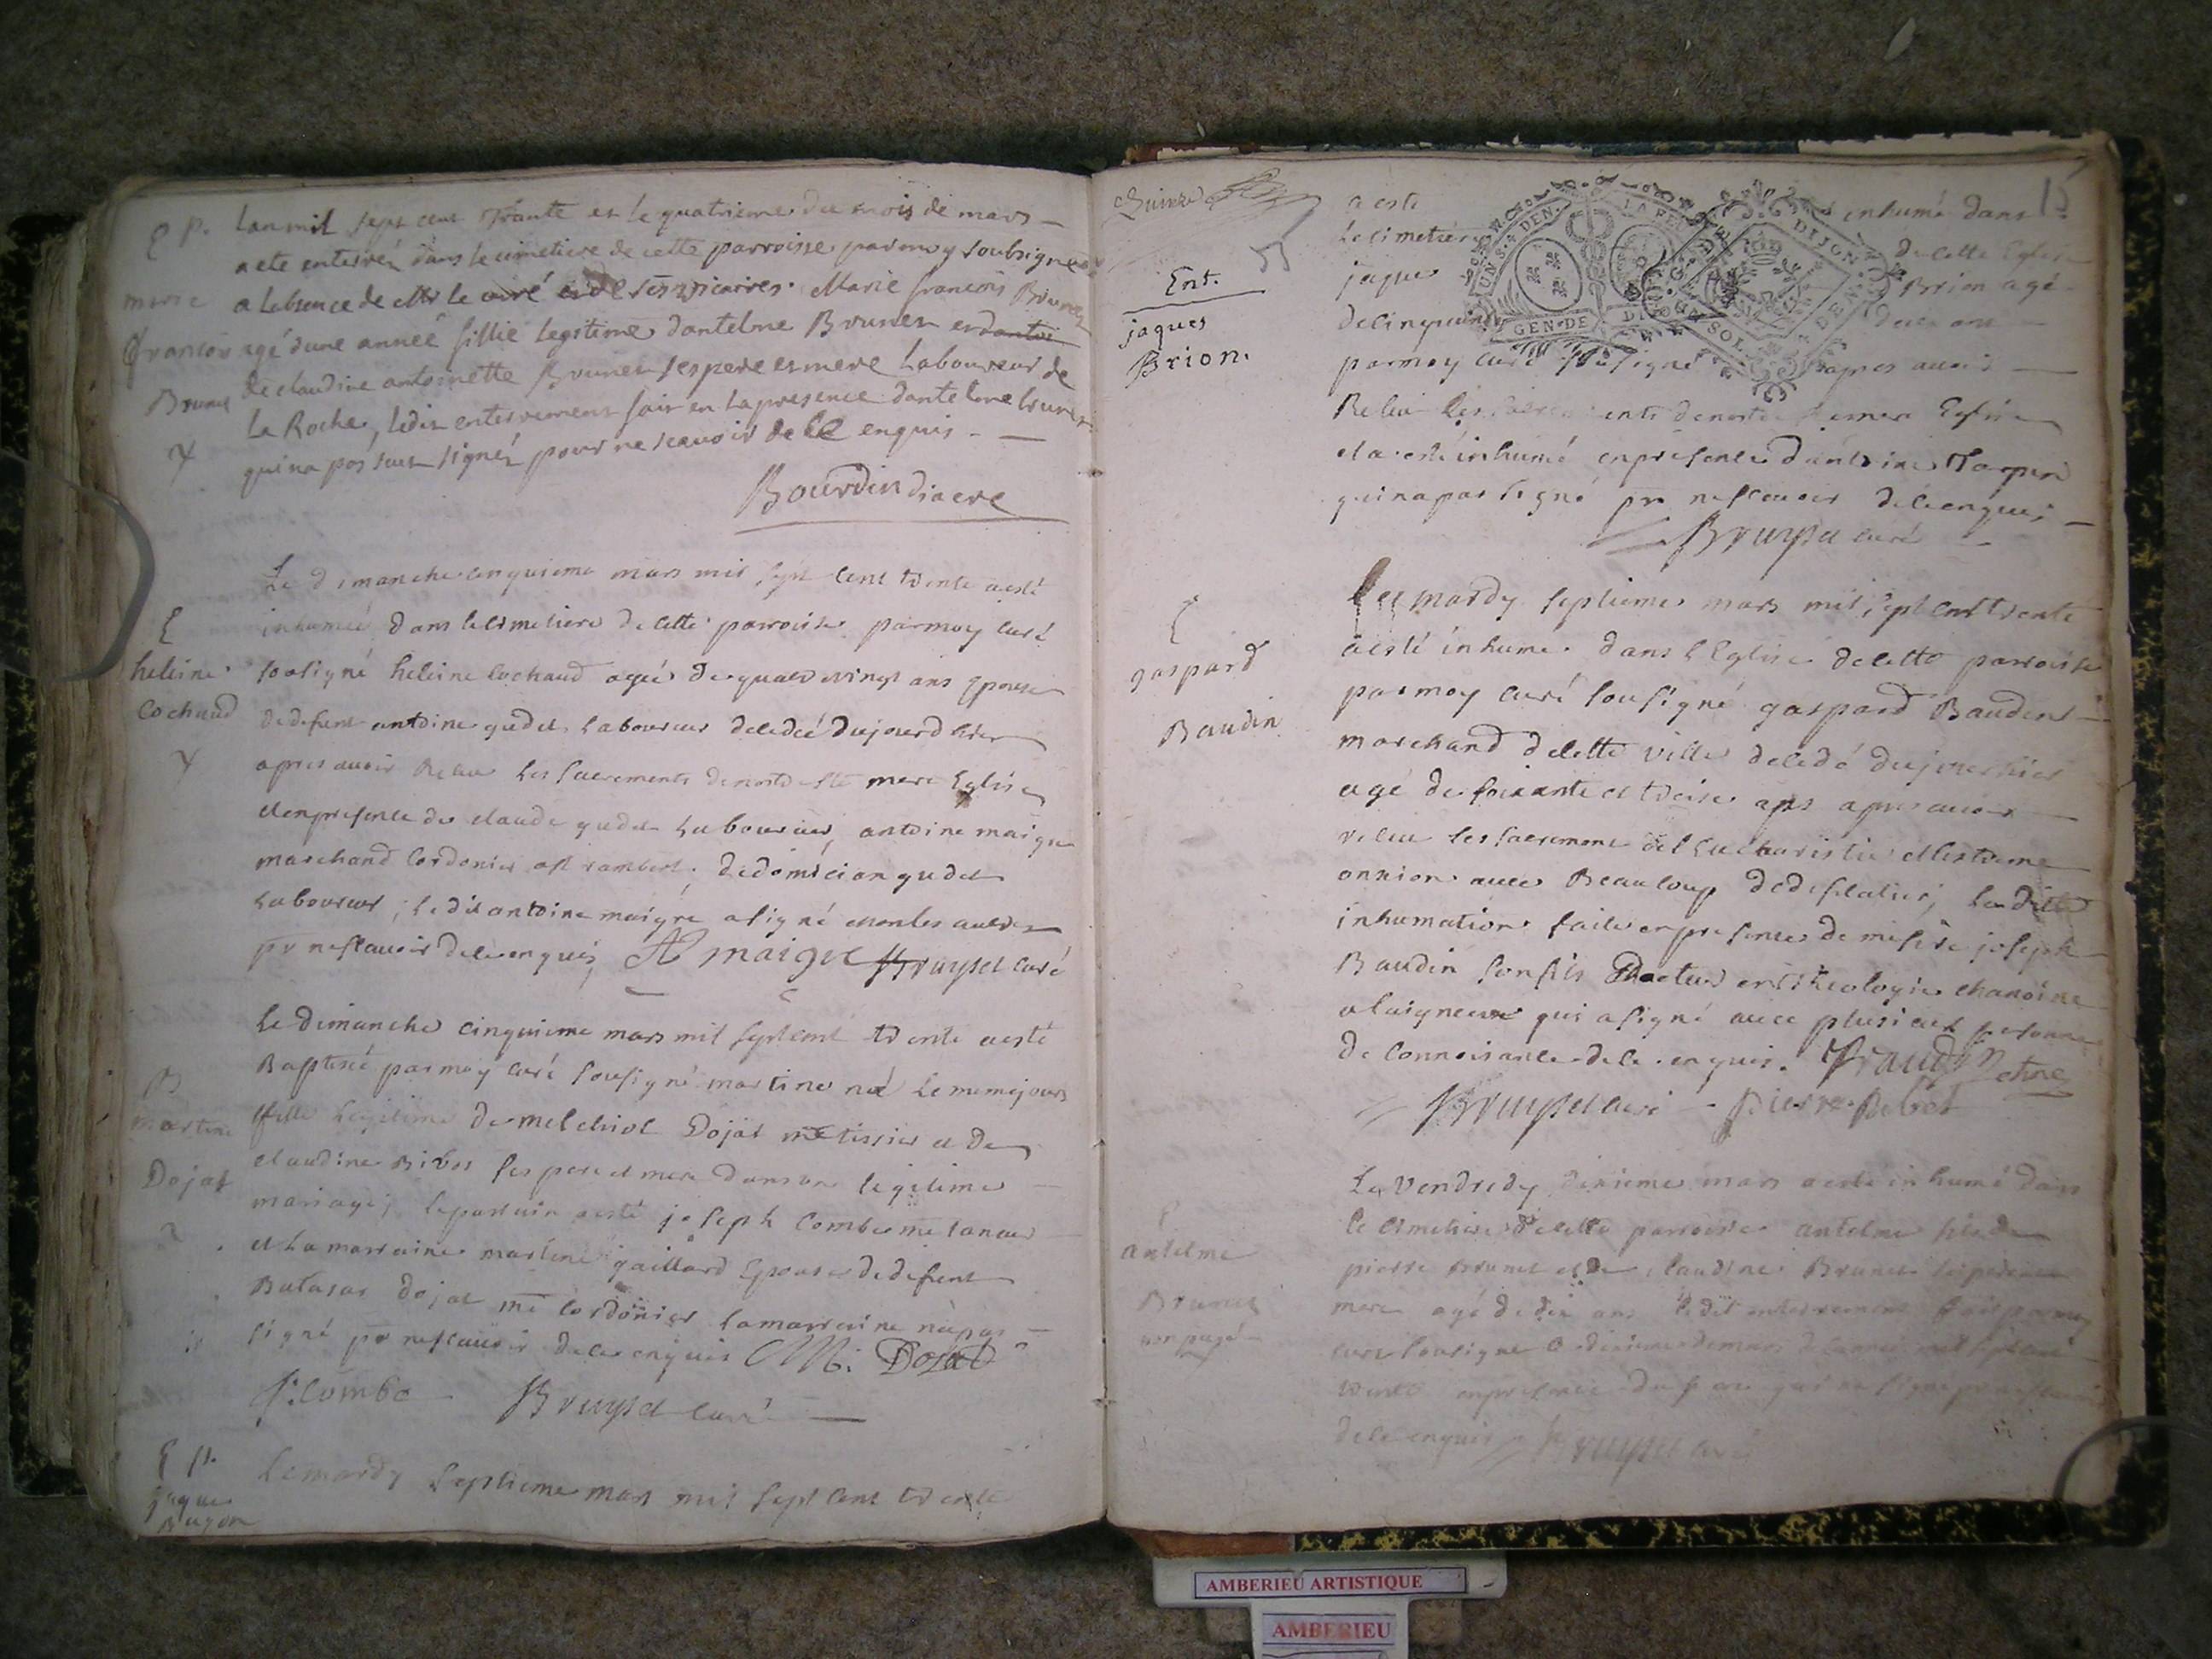 E p.
marie
françois
Brunet
Lan mil sept cent trante et le quatrieme du mois de mars
a ete enterréz dans le cimetiere de cette parroisse par moy soubsigne
a labsence de Mr le curé et de ses vicaires Marie francois Brunet
agé dune anneé fillie legitime dantelme Brunet et dantoi
de claudine antoinette Brunet ses pere et mere Laboureur de
La Roche, ledit enterrement fait en la presence dantelme brunet
qui na pas sous signéz pour ne scavoir de ce enquis
Bourdin diacre
E
heleine
Cochaud
Le dimanche cinquieme mars mil sept cent trente a esté
inhumée dans le cimetiere de cette parroisse par moy curé
sousigné heleine cochaud ageé de quatre vingt ans Epouse
de defunt antoine gudet laboureur decedeé dujourdhier
apres avoir Receu les sacrements de nostre ste mere Eglise
et en presence de claude gudet Laboureur, antoine maigre
marchand Cordonier a st rambert, de domician gudet
Laboureur, ledit antoine maigre a signé et non les autres
pr ne scavoir de ce enquis, A maigre Bruyset curé
B
martine
Dojat
Le dimanche cinquieme mars mil sept cent trente a esté
Baptisé par moy curé sousigné martine neé le meme jours
fille legitime de melchiol Dojat me tissier et de
claudine Ribos ses pere et mere dans un legitime
mariage; le parrain a esté joseph Combe me taneur
et la marraine martine gaillard Epouse de defunt
Batasar dojat me cordonier la marraine na pas
signé pr ne scavoir de ce enquis M: Dojat
J: Combe Bruyset curé
E p.
jaque
Le mardy septieme mars mil sept cent trente
15
Ent.
jaques
Brion.
a esté inhumé dans
Le cimetiere de cette Eglise
jaques Brion agé
de cinquante deux ans
par moy curé sousigné apres avoir
Receu les sacrements de nostre ste mere Eglise
et a esté inhumé en presence dantoine
qui na pas signé pr ne scavoir de ce enquis
Bruyset curé
E
gaspard
Baudin
Le mardy septieme mars mil sept cent trente
a esté inhumé dans l'Eglise de cette parroisse
par moy curé sousigné gaspard Baudin
marchand de cette ville decedé dujour hier
agé de soixante et treise ans apres avoir
receu les sacrements de l'eucharistie et lextreme
onxion avec Beaucoup dedification, la ditte
inhumation faite en presence de messire joseph
Baudin son fils Docteur en theologie chanoine
a laigneux qui a signé avec plusieurs personnes
de connoisance de ce enquis. Baudin chne
Bruyset curé Pierre
antelme
Brunet
non payé
Le vendredy dixieme mars a esté inhumé dans
le cimetiere de cette parroisse antelme fils de
pierre Brunet et de claudine Brunet ses pere et
mere agé de dix ans ledit enterrement fait par moy
curé sousigné le dixieme de mars de lannee mil sept cent
trente en presence du pere qui na signé pr ne scavoir
de ce enquis Bruyset curé
GEN. DE DIJON
DIJON
SOL
AMBERIEU ARTISTIQUE
AMBERIEU